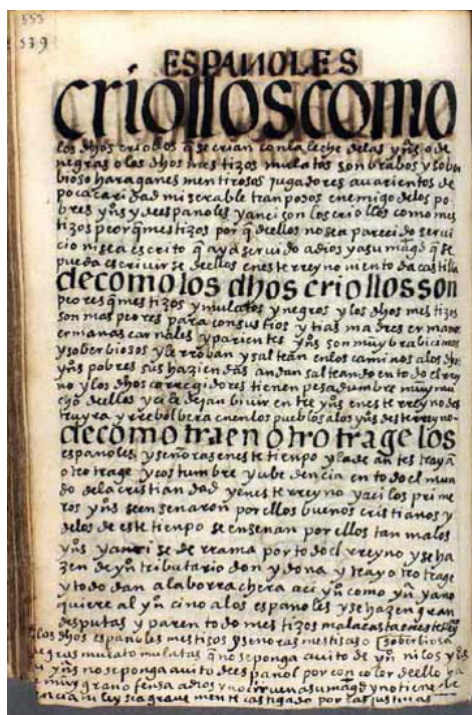 553
539
ESPAÑOLES
criollos como
los dhos criollos q̃ se crian con la leche de las yn̄s o de
negras o los dhos mestizos mulatos son brabos y sober
bioso haraganes mentirosos jugadores auarientos de
poca caridad miserable tranposos enemigo de los po
bres yn̄s y de espanoles y anci son los criollos como mes
tizos peor q̃ mestizos por q̃ de ellos no se a parecido serui
cio ni se a escrito q̃ aya seruido a dios y a su magd q̃ se
pueda escriuir se de ellos en este rreyno mento da castilla
de como los dhos criollos son
peores q̃ mestizos y mulatos y negros y los dhos mestizos
son mas peores para con sus tios y tias madres ermano
ermanas carnales y parientes yn̄s son muy brabicimos
y soberbiosos y le rroban y saltean en los caminos a los dhos
yn̄s pobres sus haziendas andan salteando en todo el rrey
no y los dhos corregidores tienen pesadumbre muy mu
cho de ellos y ci le dejan biuir entre yn̄s en este rreyno des
truyra y rrebolbera en los pueblos a los yn̄s deste rreyno
de como traen otro trage los
espanoles y señoras en este tienpo y la de antes trayã
otro trage y costumbre y ubedencia en todo el mun
do de la cristiandad y en este rreyno y aci los prime
ros yn̄s se ensenaron por ellos buenos cristianos y
de los de este tienpo se ensenan por ellos tan malos
yn̄s y anci se derrama por todo el rreyno y se ha
zen de yn̄ tributario don y dona y tray otro trage
y todo dan a la borrachera aci yn̄ como yn̄ y a no
quiere al yn̄ cino a los espanoles y se hazen gran
des putas y paren todo mestizos mala casta en este rreyno
los dhos espanoles mestisos y senoras mestisas o soberbiosa
negras mulato mulatas q̃ no se ponga auito de yn̄ ni los yn̄s
yn̄s no se ponga auito de espanol por con color de ello
muy grano fensa a dios y no ciruen a su magd y no tiene
encia ni ley sea graue mente castigado por las justicias